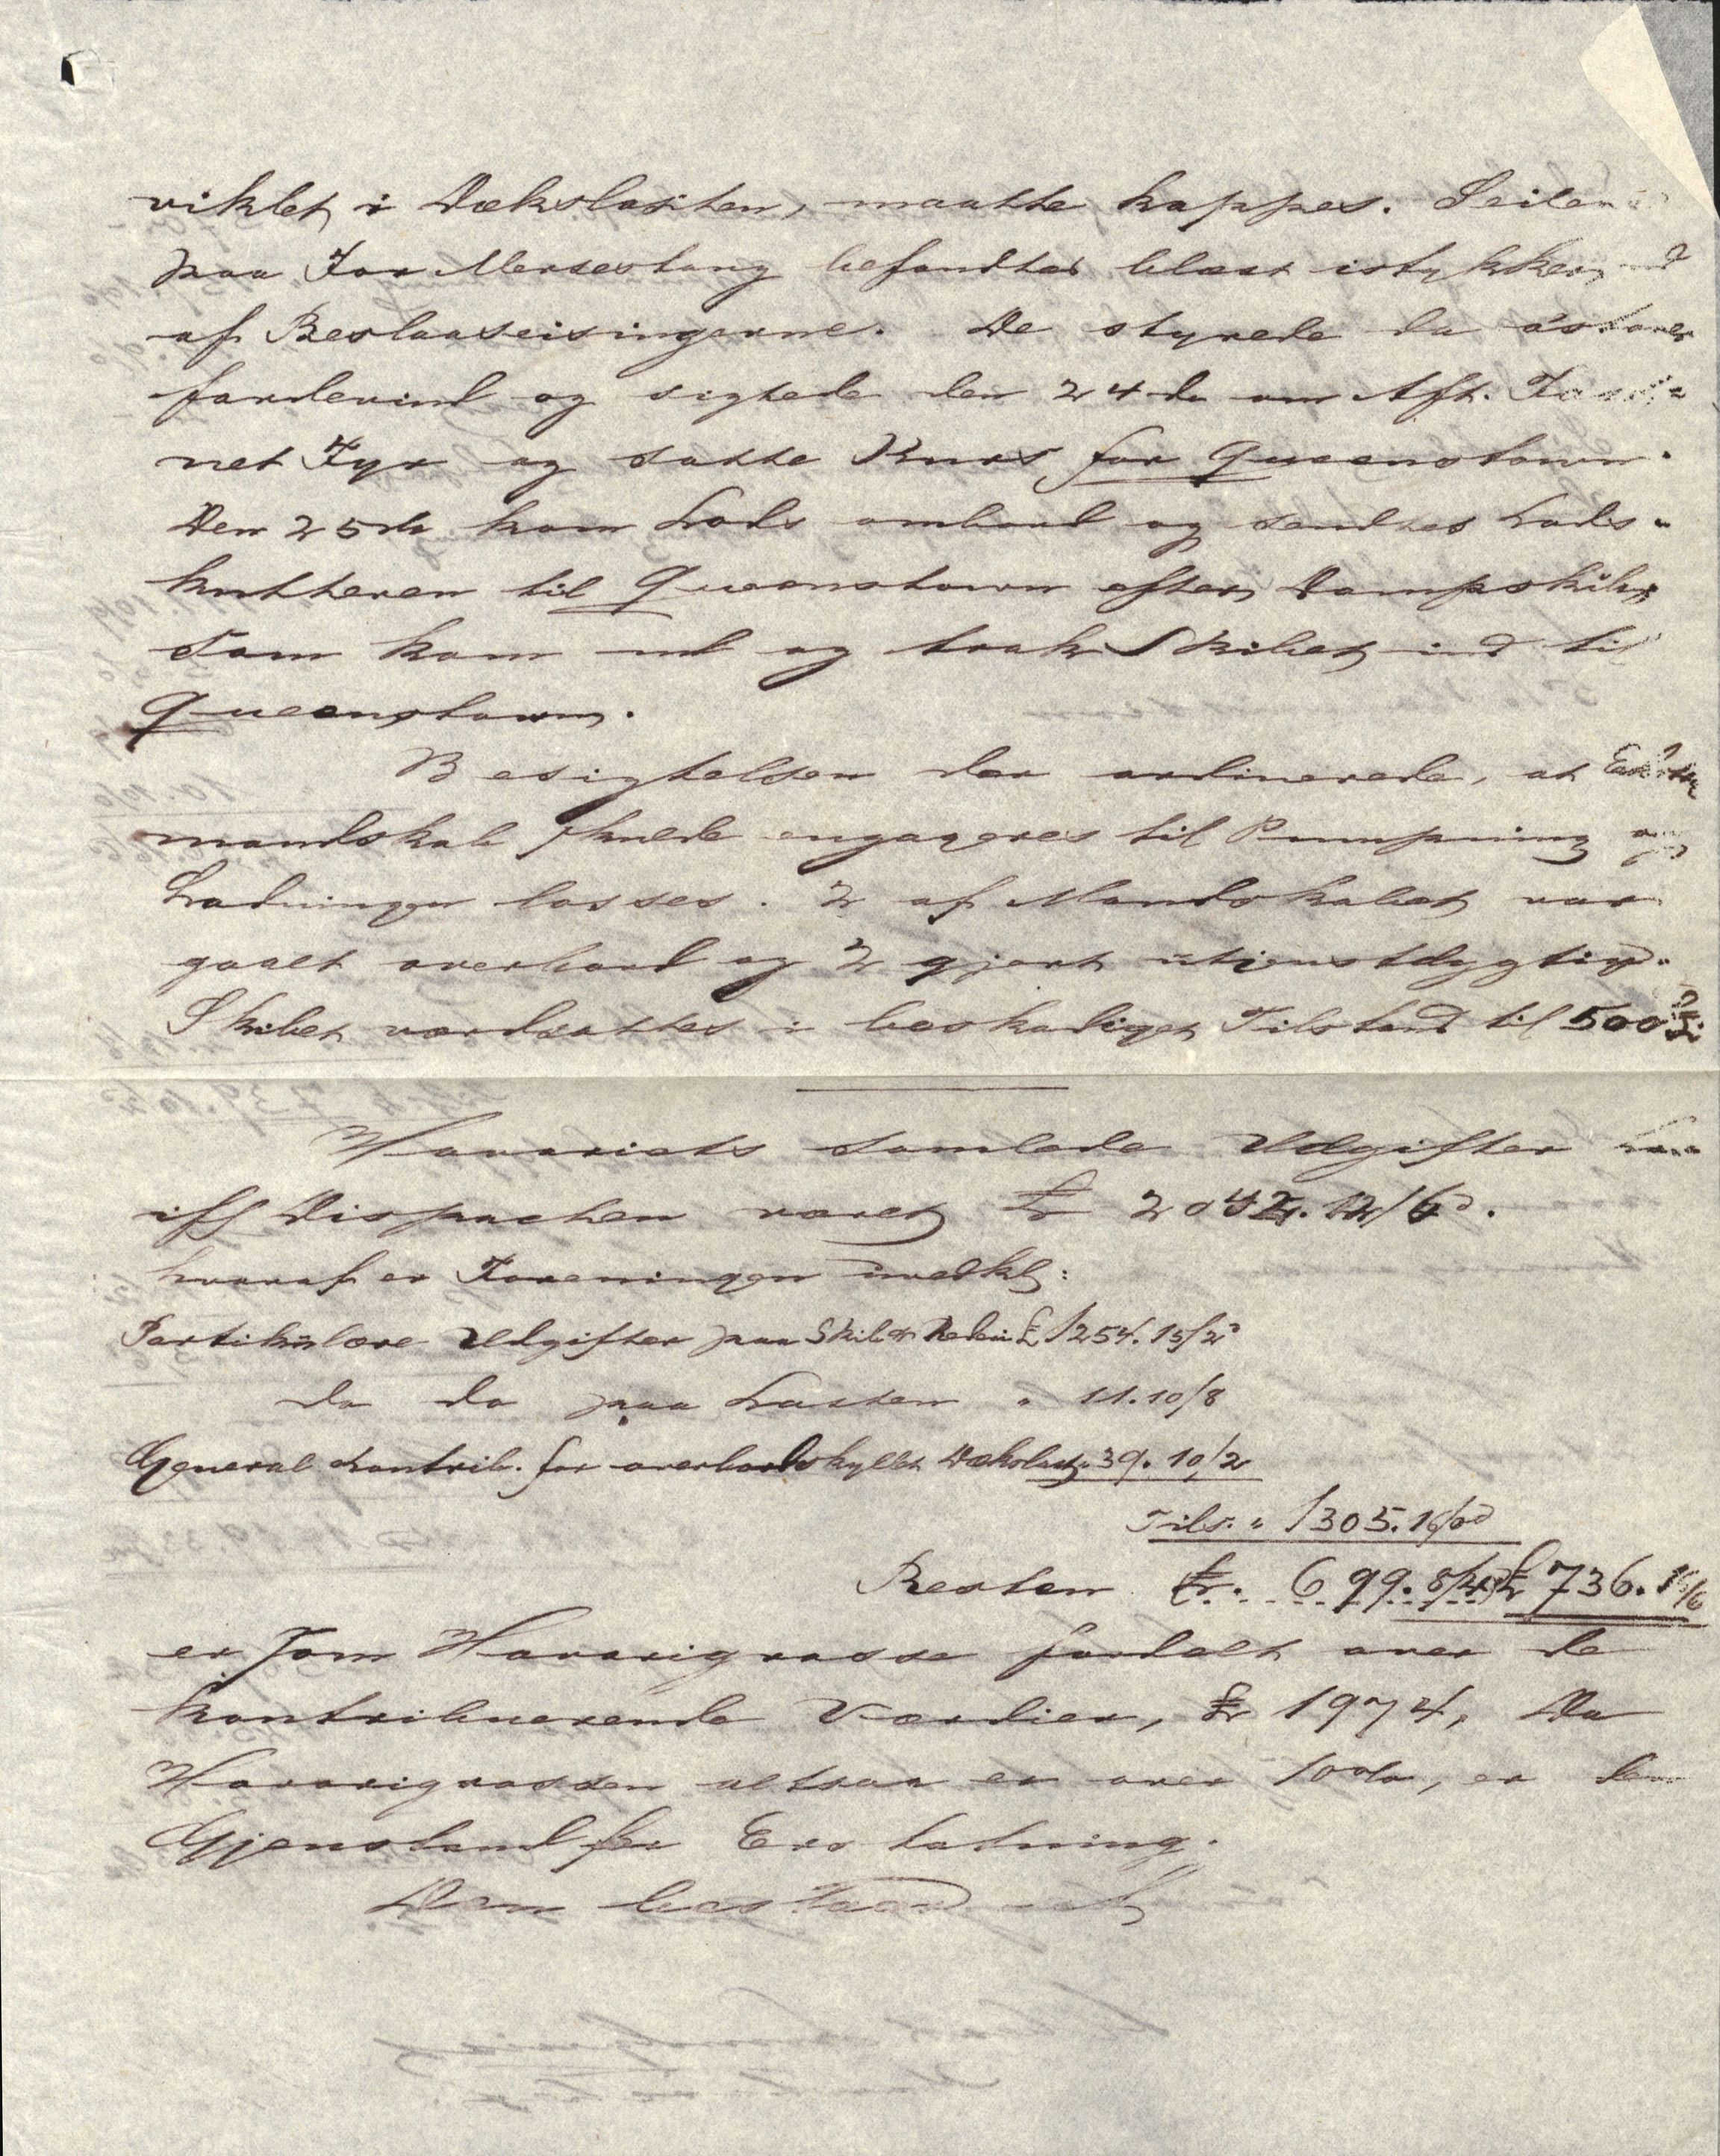 viklet i Dækslasten, maatte kappes. Seilene
paa For Mersestang befandtes blæst istykker, ud
af Beslaaseisingerne. De styrede da østover
fordevind og sigtede den 24de om Aft.
net Fyr og satte Kurs for Queenstown.
Den 25de kom Lods ombord og sendtes Lods-
kutteren til Queenstown efter Dampskib,
som kom ud og trak Skibet ind til
Queenstown.
Besigtelsen der ordinerede, at Extra
mandskab skulde engageres til Pumpning og
Ladningen losses. 2 af Mandskabet var
gaaet overbord og 2 gjort utjenstdygtig.
Skibet værdsattes i beskadiget Tilstand til 500 £
Havariets samlede Udgifter har
iflg Dispachen været £ 2042.12/6d.
hvoraf er Foreningen uvedk:
Partikulære Udgifter paa Skib & Rederi £ 1254.15/2d
do do paa Lasten " 11.10/8
General Contrib. for overbordskyllet Dækslast " 39.10/2
Tils. " 1305.16/0d
Resten £. 699.8/4d £ 736.16/6
er som Havarigrosse fordelt over de
kontribuerende Værdier, £ 1974, Da
Havarigrossen altsaa er over 10%, er den
Gjenstand for Erstatning.
Den bestaar af